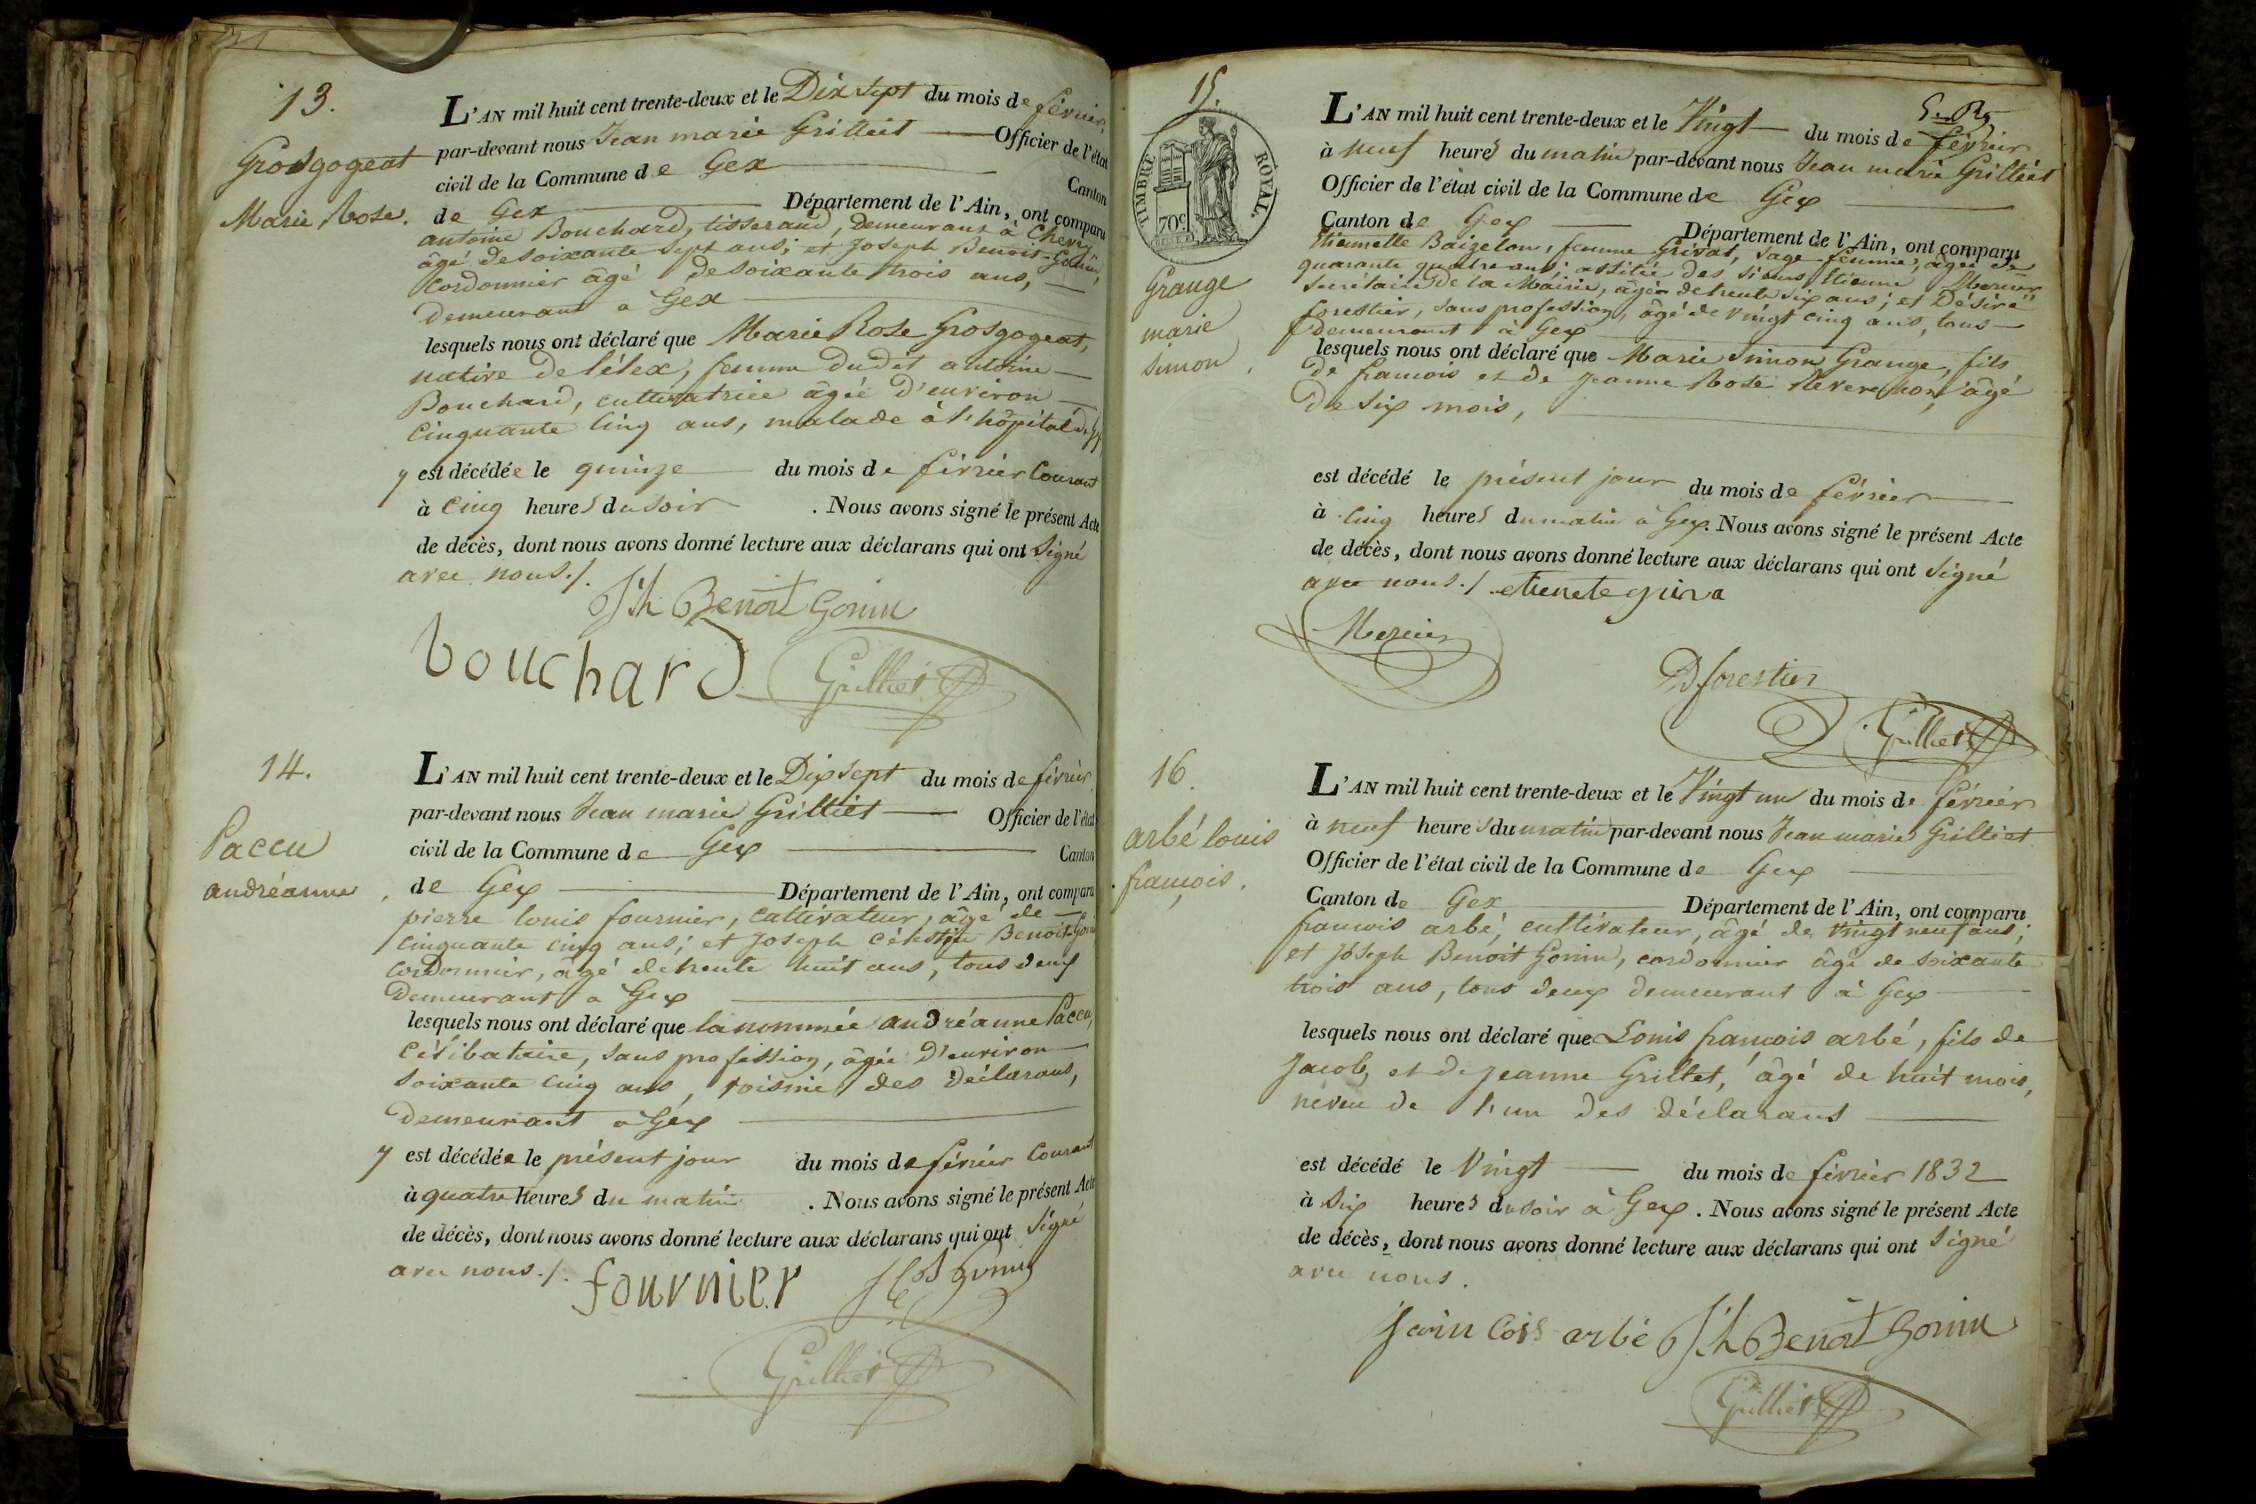 13.
Grosgogeat
Marie Rose.
L'AN mil huit cent trente-deux et le Dix sept du mois de février,
par-devant nous Jean marie Grilliet Officier de l'état
civil de la Commune de Gex Canton
de Gex Département de l'Ain, ont comparu
antoine Bouchard, tisserand, Demeurant à Chevry
âgé de soixante sept ans; et Joseph Benoit-Gonin,
Cordonnier âgé de soixante trois ans,
Demeurant a Gex
lesquels nous ont déclaré que Marie Rose Grosgogeat,
native de Lélex, femme dudit antoine
Bouchard, cultivatrice âgée D'environ
Cinquante Cinq ans, malade à l'hôpital de Gex
y est décédée le quinze du mois de février Courant
à Cinq heures du soir . Nous avons signé le présent Acte
de décès, dont nous avons donné lecture aux déclarans qui ont Signé
avec nous./.
Jh Benoit Gonin
bouchard Grilliet
14.
Paccu
andréanne
L'AN mil huit cent trente-deux et le Dix sept du mois de février
par-devant nous Jean marie Grilliet Officier de l'état
civil de la Commune de Gex Canton
de Gex Département de l'Ain, ont comparu
pierre louis fournier, Cultivateur, âgé de
Cinquante cinq ans; et Joseph Célestin Benoit-Gonin
Cordonnier, âgé de trente huit ans, tous deux
Demeurant a Gex
lesquels nous ont déclaré que la nommée andréanne Paccu,
Célibataire, sans profession, âgée D'environ
Soixante Cinq ans, voisine des Déclarans,
Demeurant a Gex
y est décédée le présent jour du mois de février Courant
à quatre heures du matin . Nous avons signé le présent Acte
de décès, dont nous avons donné lecture aux déclarans qui ont Signé
avec nous./.
fournier
Grilliet
15.
TIMBRE ROYAL.
70c.
Grange
marie
Simon,
L'AN mil huit cent trente-deux et le Vingt du mois de février
à neuf heures du matin par-devant nous Jean marie Grilliet
Officier de l'état civil de la Commune de Gex
Canton de Gex Département de l'Ain, ont comparu
Etiennette Baizelon, femme Grivat, sage femme, âgée de
quarante quatre ans; assistée des sieurs Etienne Mercier
Secrétaire de la Mairie, âgé de trente six ans; et Désiré
forestier, sans profession, âgé de vingt cinq ans, tous
Demeurant à Gex
lesquels nous ont déclaré que Marie Simon Grange, fils
De francois et de Jeanne Rose Reveremon, âgé
De Six mois,
est décédé le présent jour du mois de février
à Cinq heures du matin à Gex. Nous avons signé le présent Acte
de décès, dont nous avons donné lecture aux déclarans qui ont Signé
avec nous./. etienete griva
Mercier
D forestier
Grilliet
16.
arbé louis
françois.
L'AN mil huit cent trente-deux et le Vingt un du mois de février
à neuf heures du matin par-devant nous Jean marie Grilliet
Officier de l'état civil de la Commune de Gex
Canton de Gex Département de l'Ain, ont comparu
francois arbé, cultivateur, âgé de vingt neuf ans;
et Joseph Benoit Gonin, cordonnier âgé de soixante
trois ans, tous deux demeurant à Gex
lesquels nous ont déclaré que Louis françois arbé, fils de
Jacob, et de Jeanne Grillet, âgé de huit mois,
neveu de l'un des déclarans
est décédé le Vingt du mois de février 1832
à Six heures du soir à Gex. Nous avons signé le présent Acte
de décès, dont nous avons donné lecture aux déclarans qui ont Signé
avec nous.
arbé Jh Benoit Gonin
Grilliet